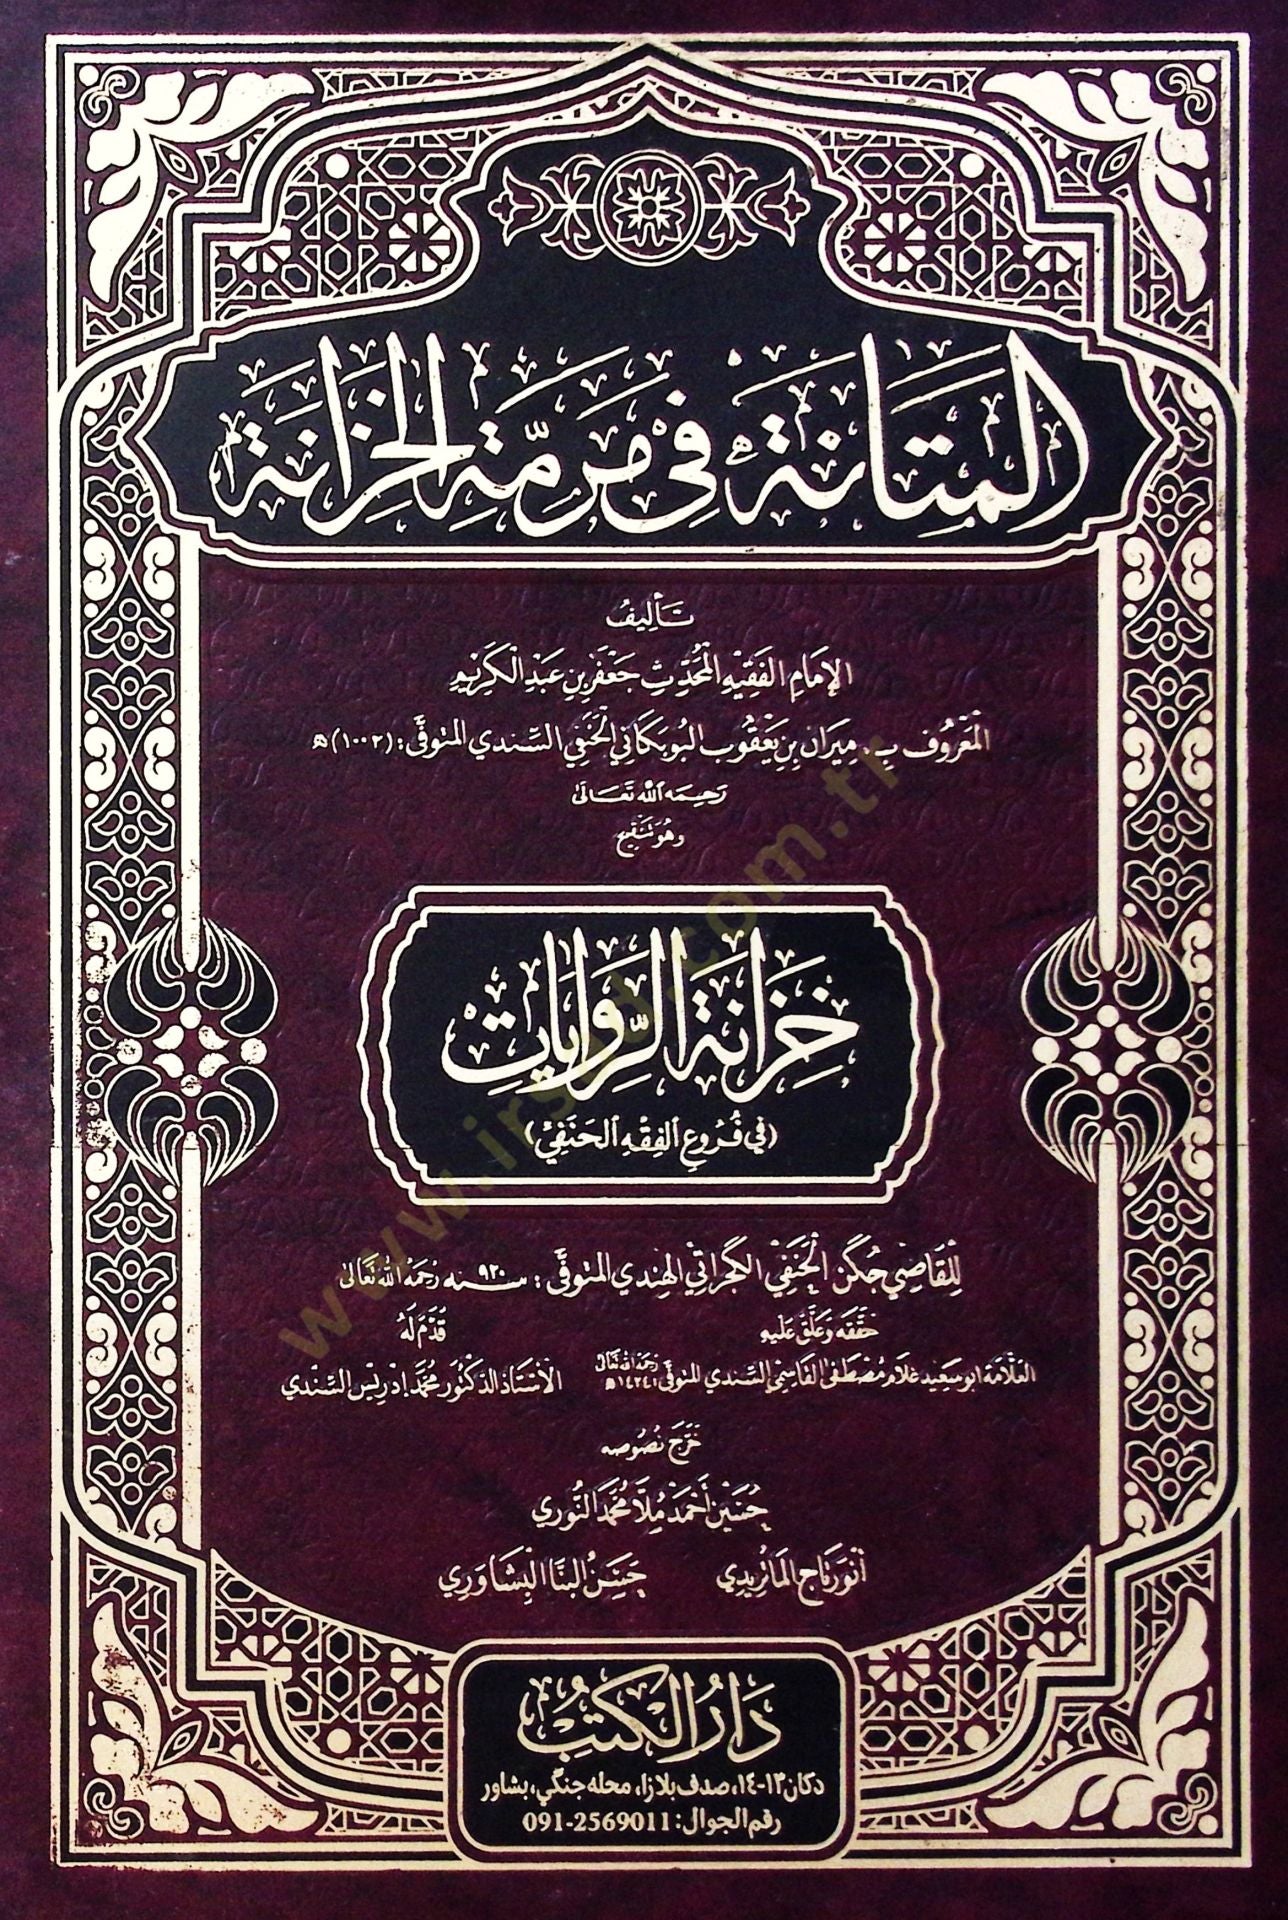 المتانة في مرمة الخزانة
تأليف
الإمام الفقيه المحدث جعفر بن عبد الكريم
المعروف ب. ميران بن يعقوب البوبكاني الحنفي السندي المتوفى: (١٠٠٢)ھ
رحمه الله تعالى
وهو تنقيح
خزانة الروايات
(في فروع الفقه الحنفي)
للقاضي جكن الحنفي الكجراتي الهندي المتوفى: سنه ٩٢٠ رحمه الله تعالى
حققه وعلق عليه
قدم له
العلامة ابو سعيد غلام مصطفى القاسمي السندي المتوفى ١٤٢٤ھ رحمه الله تعالى
الأستاذ الدكتور محمد ادريس السندي
خرج نصوصه
حسين أحمد ملا محمد النوري
أنور تاج الماتريدي
حسن البنا البشاوري
دار الكتب
دكان ١٣-١٤، صدف بلازا، محله جنگي، بشاور
رقم الجوال: 091-2569011
www.irsad.com.tr